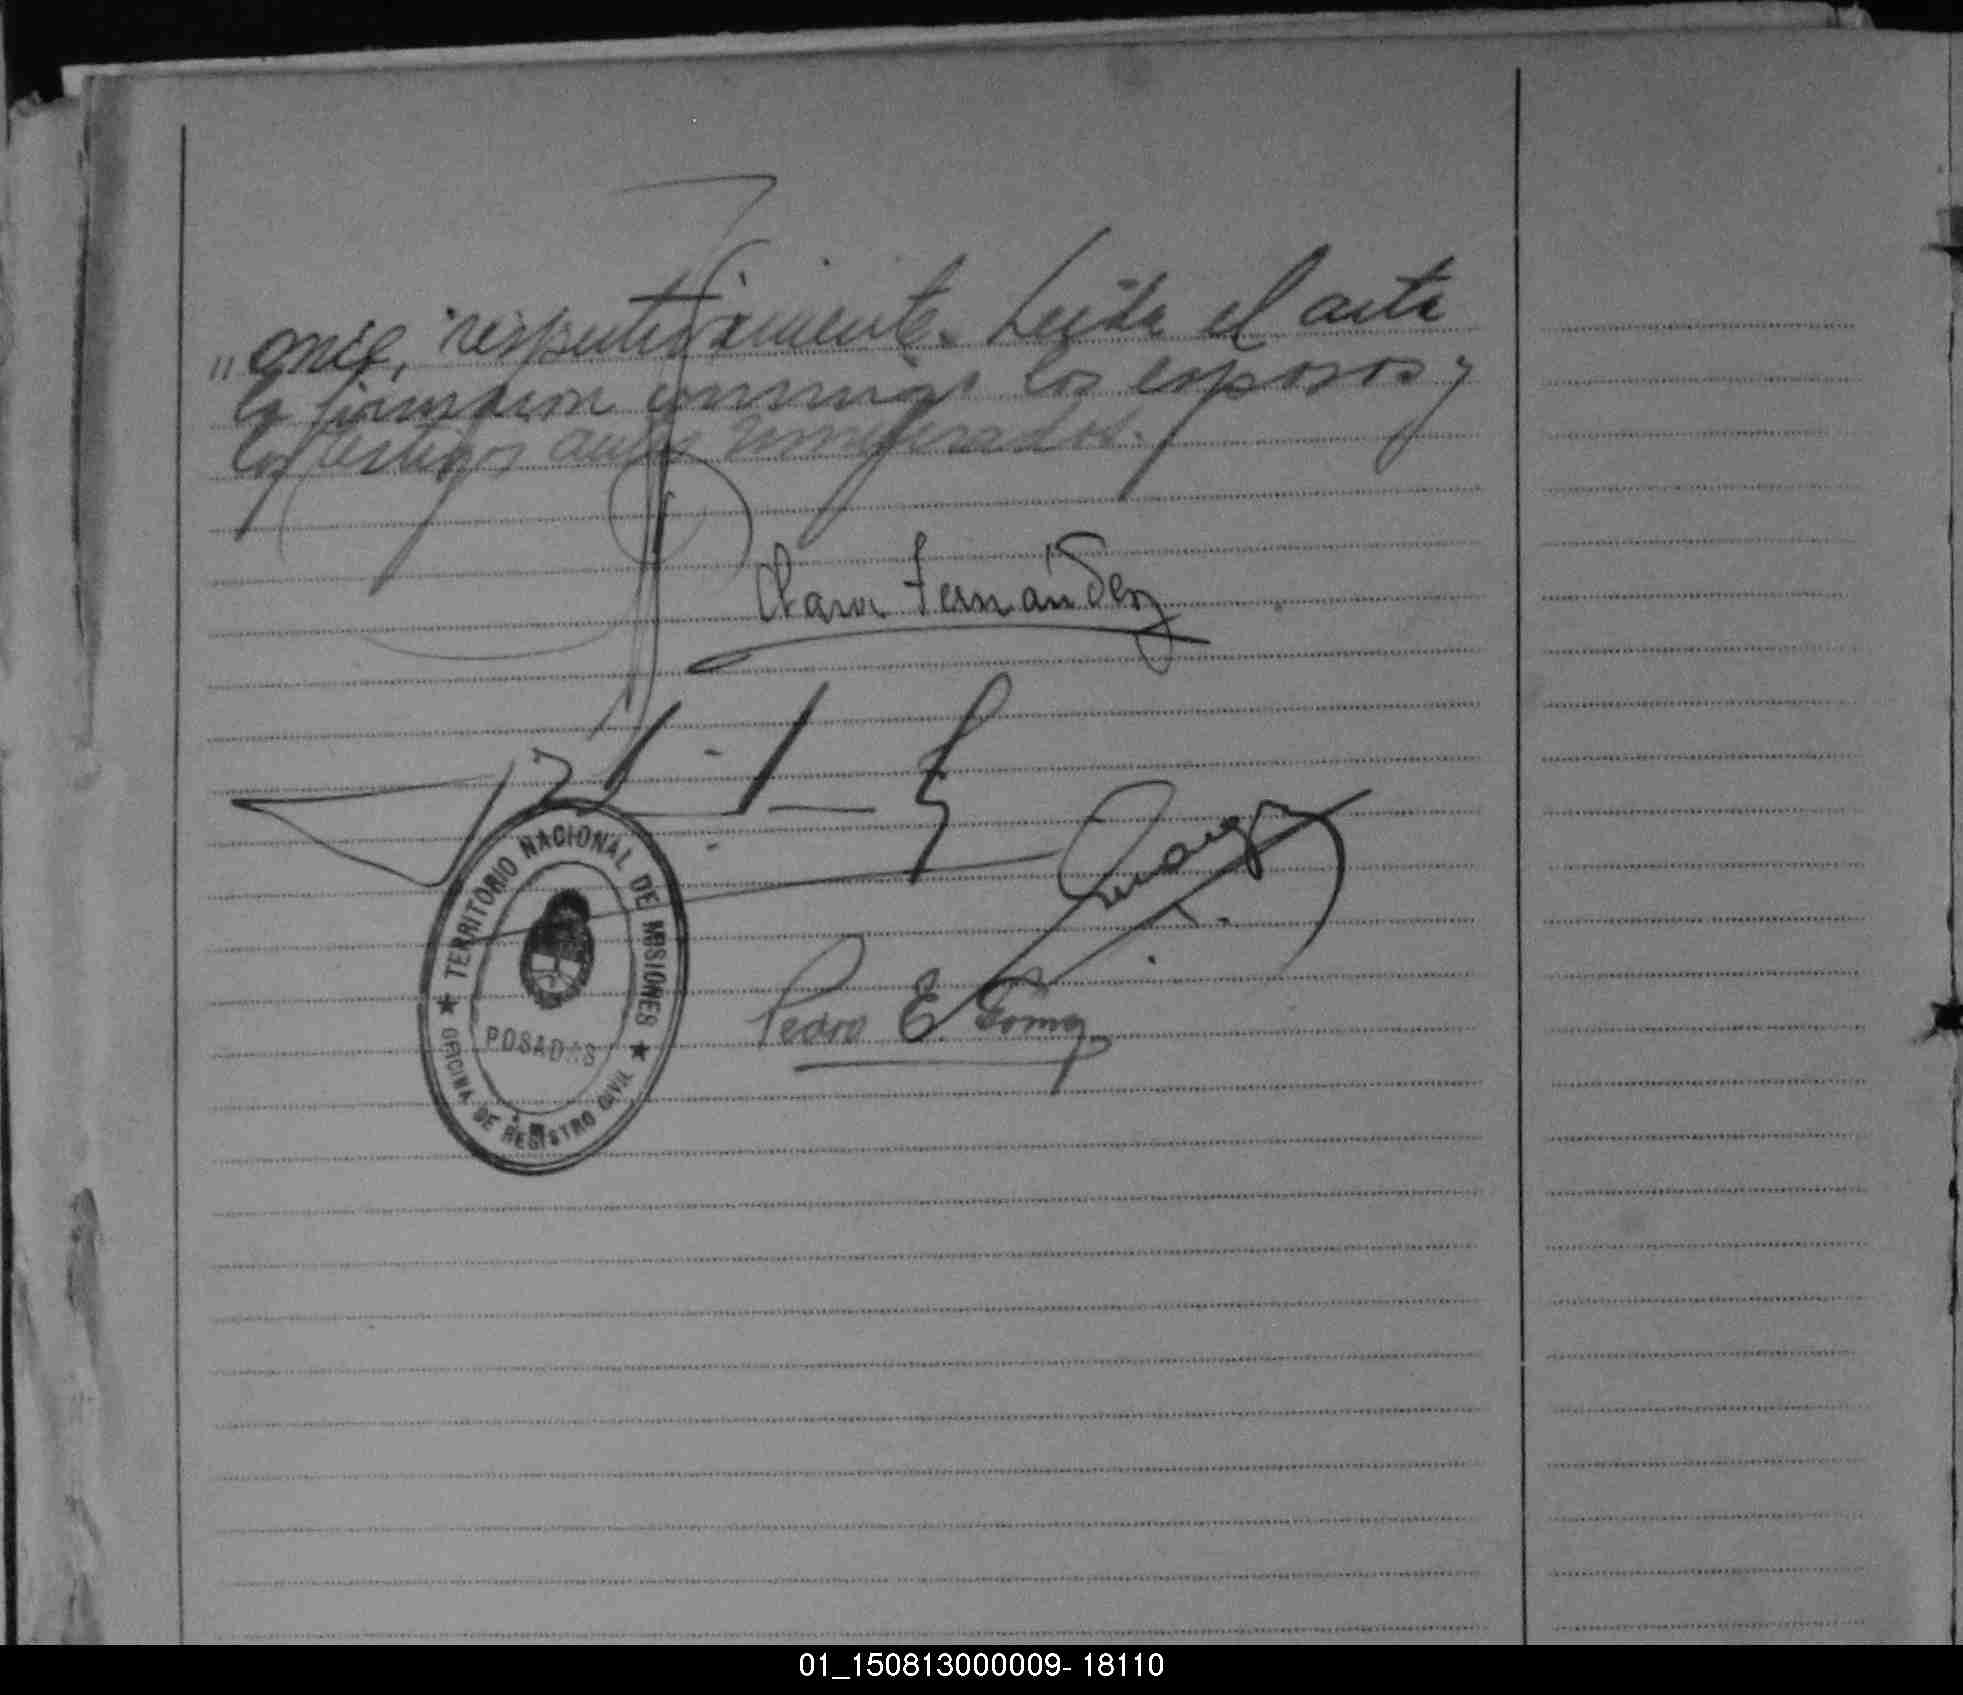 „ once, respectivamente. Leída el acta
la firmaron conmigo los esposos y
los testigos antes nombrados.
Clara Fernández
TERRITORIO NACIONAL DE MISIONES
POSADAS
OFICINA DE REGISTRO CIVIL
Pedro E. Gomez
01_150813000009- 18110